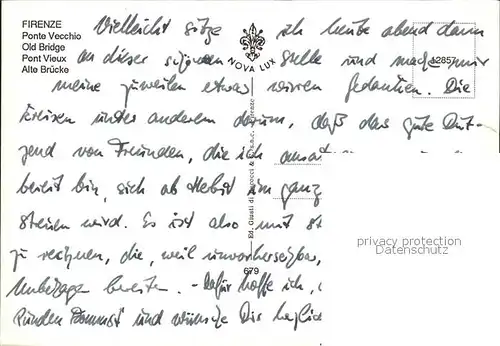 FIRENZE
Ponte Vecchio
Old Bridge
Pont Vieux
Alte Brücke
NOVA LUX
12857
679
Vielleicht sitze ich heute abend dann
an dieser schönen Stelle und mache mir
meine zuweilen etwas wirren Gedanken. Die
kreisen unter anderem darum, daß das gute Dut-
zend von Freunden, die ich
bereit bin, sich ab Herbst im ganz
streuen wird. Es ist also mit
zu rechnen, die, weil unvorhersehbar,
Unbehagen bereiten. - Dafür hoffe ich,
und wünsche Dir
privacy protection
Datenschutz